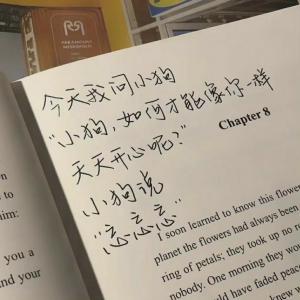 今天我问小狗
“小狗，如何才能像你一样
天天开心呢？”
小狗说
“忘忘忘”
Chapter 8
I soon learned to know this flow
planet the flowers had always been
ring of petals; they took up no
nobody. One morning they wou
have faded peac
knew
to
him:
you a
nd your